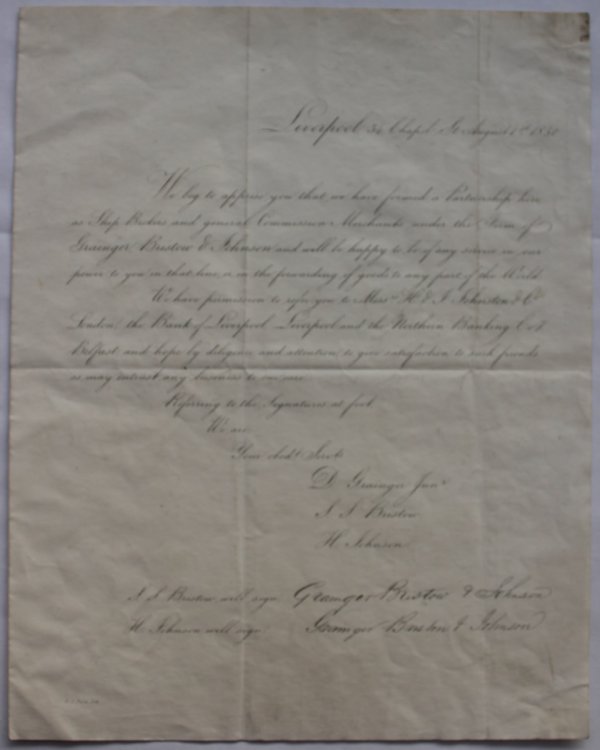 Liverpool 34 Chapel St August 1st
We beg to apprise you that we have formed a Partnership here
as Ship Brokers and general Commission Merchants under the Firm of
Grainger Bristow & Johnson and will be happy to be of any service in our
power to you in that line, or in the forwarding of goods to any part of the World.
We have permission to refer you to Messrs H & J Johnston & Co
London, the Bank of Liverpool Liverpool and the Northern Banking Co of
Belfast and hope by diligence and attention to give satisfaction to such friends
as may entrust any business to our care.
Referring to the Signatures at foot,
We are
Your obedt Servts
D. Grainger Junr
Bristow
H Johnson
Bristow will sign Grainger Bristow & Johnson
H. Johnson will sign Grainger Bristow & Johnson